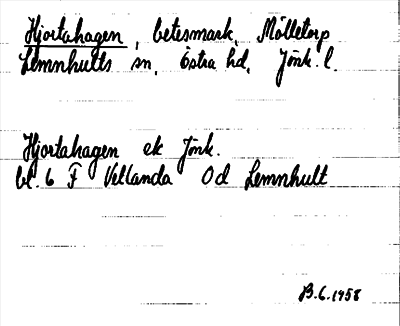 Hjortahagen, betesmark, Mölletorp
Lemnhults sn, Östra hd, Jönk. l.
Hjortahagen ek Jönk.
bl. 6 F Vetlanda Od Lemnhult
B.6.1958